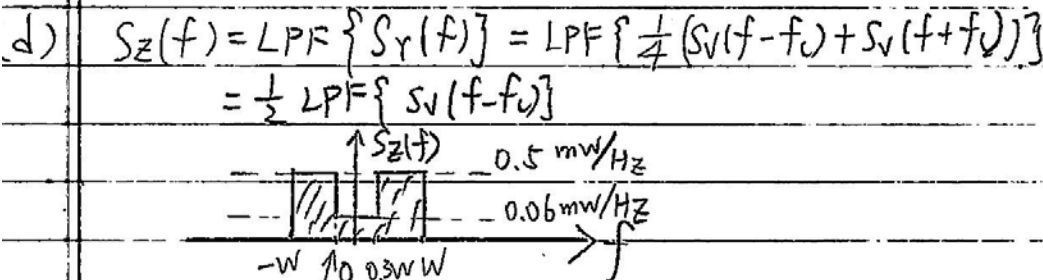 d) S_Z(f) = LPF { S_Y(f)} = LPF { 1/4 (S_V(f-f_c) + S_V(f+f_c))}
= 1/2 LPF{ S_V(f-f_c)}
S_Z(f)
0.5 mW/Hz
0.06 mW/Hz
-W ↑0 0.3W W f